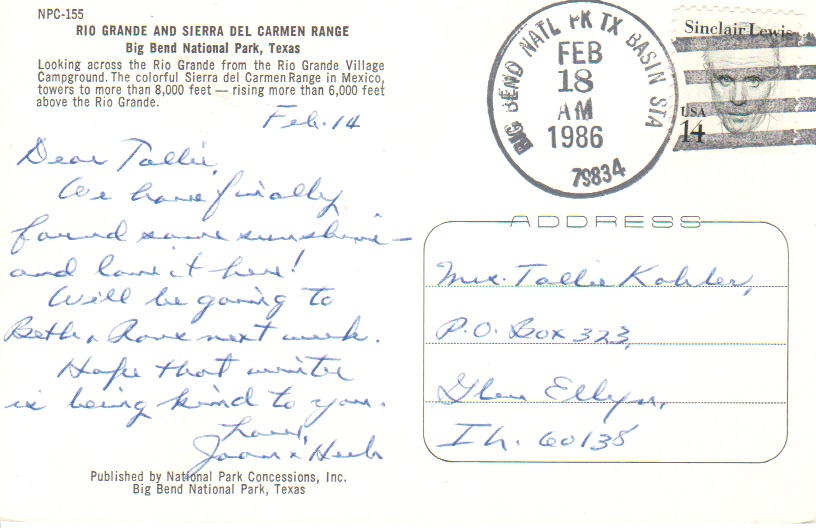 NPC-155
RIO GRANDE AND SIERRA DEL CARMEN RANGE
Big Bend National Park, Texas
Looking across the Rio Grande from the Rio Grande Village
Campground. The colorful Sierra del Carmen Range in Mexico,
towers to more than 8,000 feet — rising more than 6,000 feet
above the Rio Grande.
Feb. 14
Dear Tallie,
We have finally
found some sunshine —
and love it here!
Will be going to
Beth & next week.
Hope that winter
is being kind to you.
Love,
Joan & Herb
Published by National Park Concessions, Inc.
Big Bend National Park, Texas
BIG BEND NATL PK TX BASIN STA
FEB
18
AM
1986
79834
Sinclair Lewis
USA
14
ADDRESS
Mrs. Tallie Kohler,
P.O. Box 323,
Glen Ellyn,
Ill. 60138